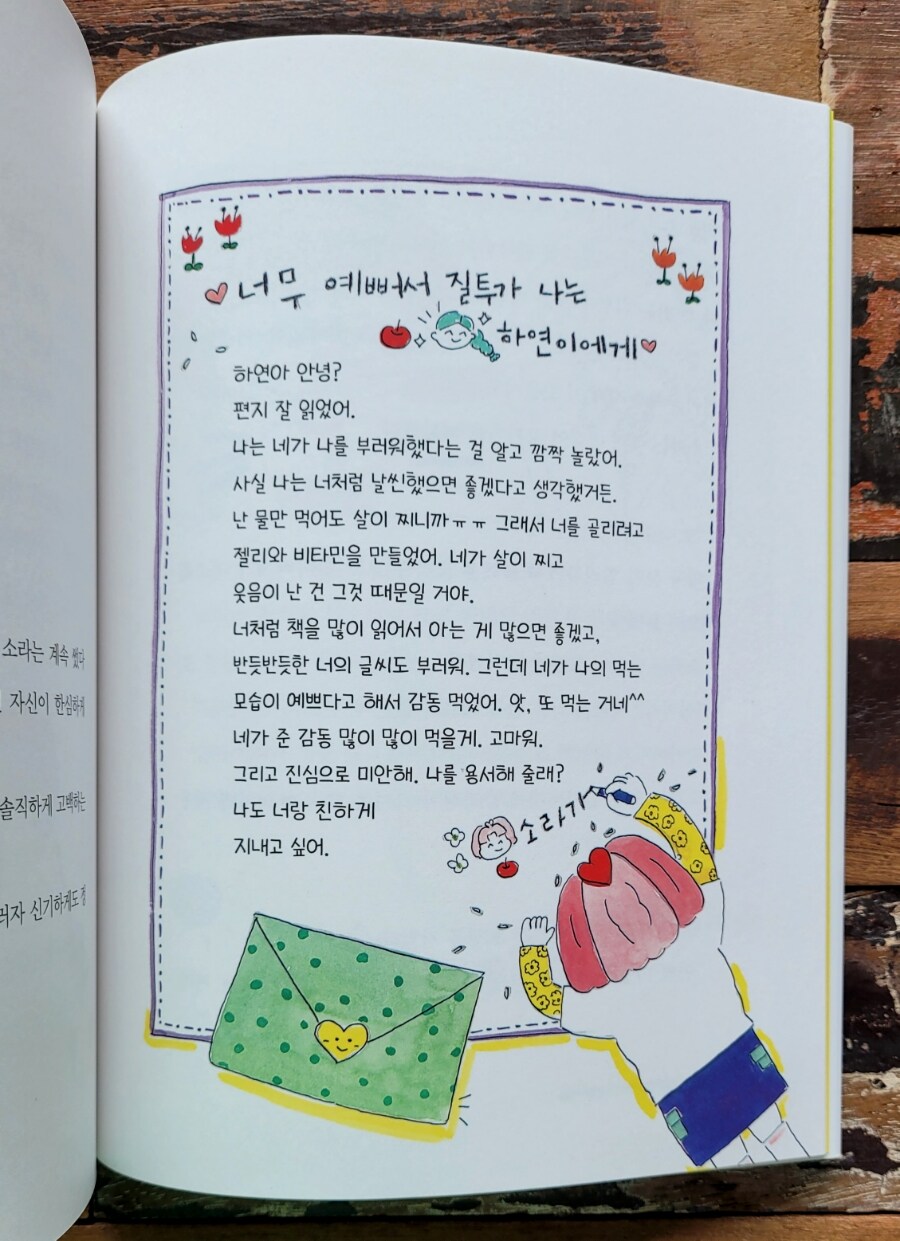 소라는 계속 썼다
자신이 한심하게
솔직하게 고백하는
러자 신기하게도 정
너무 예뻐서 질투가 나는
하연이에게
하연아 안녕?
편지 잘 읽었어.
나는 네가 나를 부러워했다는 걸 알고 깜짝 놀랐어.
사실 나는 너처럼 날씬했으면 좋겠다고 생각했거든.
난 물만 먹어도 살이 찌니까ㅠㅠ 그래서 너를 골리려고
젤리와 비타민을 만들었어. 네가 살이 찌고
웃음이 난 건 그것 때문일 거야.
너처럼 책을 많이 읽어서 아는 게 많으면 좋겠고,
반듯반듯한 너의 글씨도 부러워. 그런데 네가 나의 먹는
모습이 예쁘다고 해서 감동 먹었어. 앗, 또 먹는 거네^^
네가 준 감동 많이 많이 먹을게. 고마워.
그리고 진심으로 미안해. 나를 용서해 줄래?
나도 너랑 친하게
지내고 싶어.
소라가